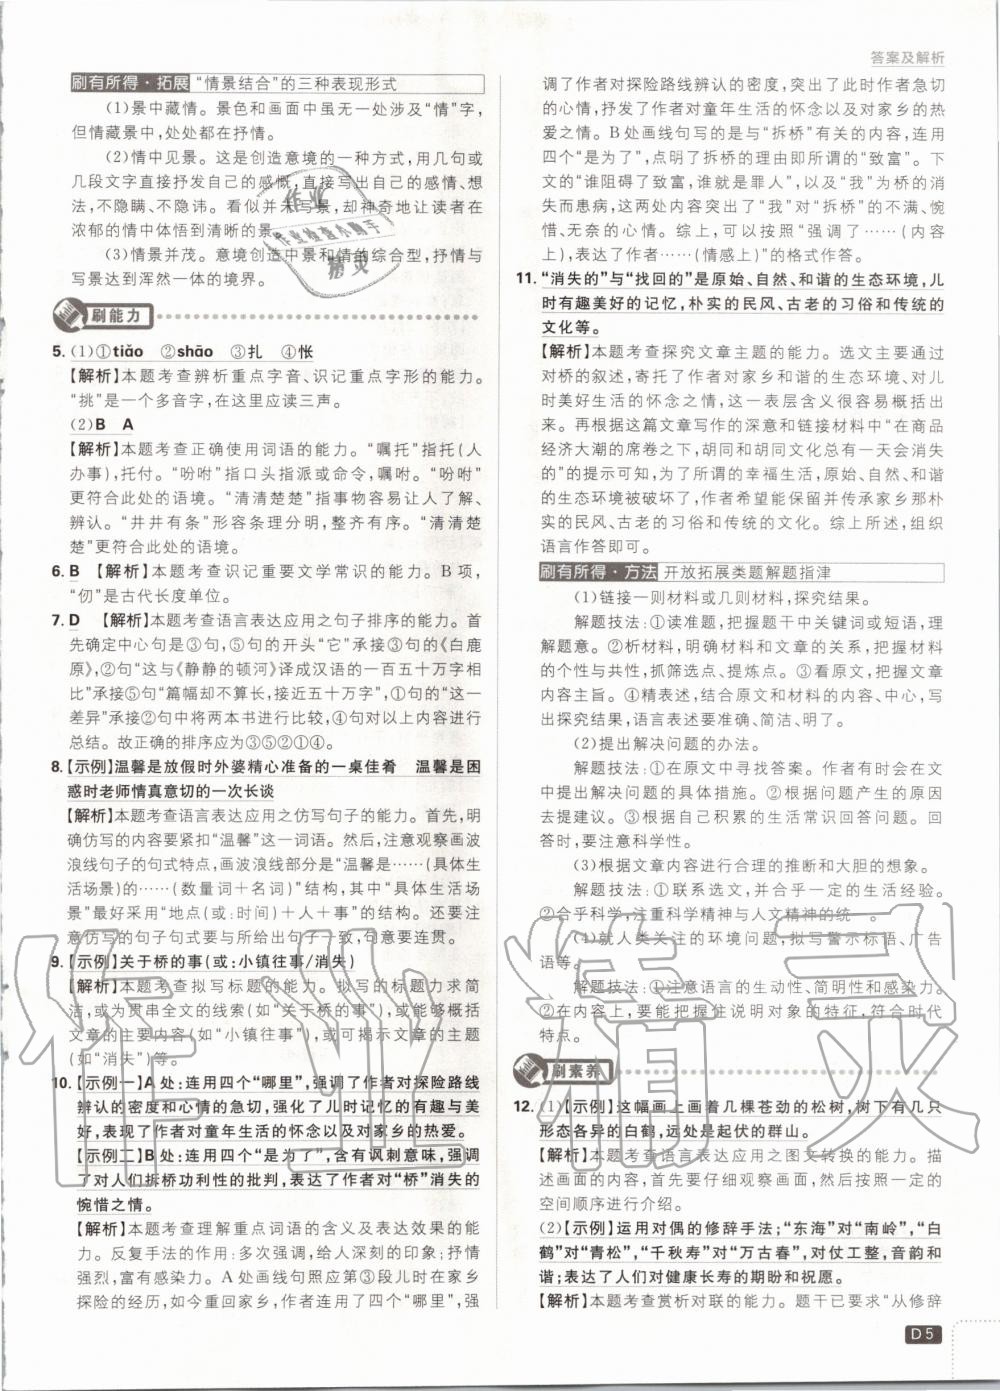 答案及解析
刷有所得·拓展 “情景结合”的三种表现形式
(1)景中藏情。景色和画面中虽无一处涉及“情”字，
但情藏景中，处处都在抒情。
(2)情中见景。这是创造意境的一种方式，用几句或
几段文字直接抒发自己的感慨，直接写出自己的感情、想
法，不隐瞒、不隐讳。看似并未写景，却神奇地让读者在
浓郁的情中体悟到清晰的景。
(3)情景并茂。意境创造中景和情的综合型，抒情与
写景达到浑然一体的境界。
刷能力
5. (1)①tiǎo ②shāo ③扎 ④怅
【解析】本题考查辨析重点字音、识记重点字形的能力。
“挑”是一个多音字，在这里应读三声。
(2)B A
【解析】本题考查正确使用词语的能力。“嘱托”指托(人
办事)，托付。“吩咐”指口头指派或命令，嘱咐。“吩咐”
更符合此处的语境。“清清楚楚”指事物容易让人了解、
辨认。“井井有条”形容条理分明，整齐有序。“清清楚
楚”更符合此处的语境。
6. B 【解析】本题考查识记重要文学常识的能力。B项，
“仞”是古代长度单位。
7. D 【解析】本题考查语言表达应用之句子排序的能力。首
先确定中心句是③句，⑤句的开头“它”承接③句的《白鹿
原》，②句“这与《静静的顿河》译成汉语的一百五十万字相
比”承接⑤句“篇幅却不算长，接近五十万字”，①句的“这一
差异”承接②句中将两本书进行比较，④句对以上内容进行
总结。故正确的排序应为③⑤②①④。
8. 【示例】温馨是放假时外婆精心准备的一桌佳肴 温馨是困
惑时老师情真意切的一次长谈
【解析】本题考查语言表达应用之仿写句子的能力。首先，明
确仿写的内容要紧扣“温馨”这一词语。然后，注意观察画波
浪线句子的句式特点，画波浪线部分是“温馨是……(具体生
活场景)的……(数量词＋名词)”结构，其中“具体生活场景”
最好采用“地点(或：时间)＋人＋事”的结构。还要注
意仿写的句子句式要与所给出句子一致，句意要连贯。
9. 【示例】关于桥的事(或：小镇往事/消失)
【解析】本题考查拟写标题的能力。拟写的标题力求简
洁，或为贯串全文的线索(如“关于桥的事”)，或能够概括
文章的主要内容(如“小镇往事”)，或可揭示文章的主旨
(如“消失”)等。
10. 【示例一】A处：连用四个“哪里”，强调了作者对探险路线
辨认的密度和心情的急切，强化了儿时记忆的有趣与美
好，表现了作者对童年生活的怀念以及对家乡的热爱。
【示例二】B处：连用四个“是为了”，含有讽刺意味，强调
了对人们拆桥功利性的批判，表达了作者对“桥”消失的
惋惜之情。
【解析】本题考查理解重点词语的含义及表达效果的能
力。反复手法的作用：多次强调，给人深刻的印象；抒情
强烈，富有感染力。A处画线句照应第③段儿时在家乡
探险的经历，如今重回家乡，作者连用了四个“哪里”，强
调了作者对探险路线辨认的密度，突出了此时作者急切
的心情，抒发了作者对童年生活的怀念以及对家乡的热
爱之情。B处画线句写的是与“拆桥”有关的内容，连用
四个“是为了”，点明了拆桥的理由即所谓的“致富”。下
文的“谁阻碍了致富，谁就是罪人”，以及“我”为桥的消
失而患病，这两处内容突出了“我”对“拆桥”的不满、惋
惜、无奈的心情。综上，可以按照“强调了……(内容
上)，表达了作者……(情感上)”的格式作答。
11. “消失的”与“找回的”是原始、自然、和谐的生态环境，儿
时有趣美好的记忆，朴实的民风、古老的习俗和传统的
文化等。
【解析】本题考查探究文章主题的能力。选文主要通过
对桥的叙述，寄托了作者对家乡和谐的生态环境、对儿
时美好生活的怀念之情，这一表层含义很容易发现。
再根据这篇文章写作的深意和链接材料中“在商品
经济大潮的席卷之下，胡同和胡同文化总有一天会消失
的”的提示可知，为了所谓的幸福生活，原始、自然、和谐
的生态环境被破坏了，作者希望能保留并传承家乡那朴
实的民风、古老的习俗和传统的文化。综上所述，组织
语言作答即可。
刷有所得·方法 开放拓展类题解题指津
(1)链接一则材料或几则材料，探究结果。
解题技法：①读准题，把握题干中关键词或短语，理
解题意。②析材料，明确材料和文章的关系，把握材料
的个性与共性，抓筛选点、提炼点。③看原文，把握文章
内容主旨。④精表述，结合原文和材料的内容、中心，写
出探究结果，语言表述要准确、简洁、明了。
(2)提出解决问题的办法。
解题技法：①在原文中寻找答案。作者有时会在文
中提出解决问题的具体措施。②根据问题产生的原因
去提建议。③根据自己积累的生活常识回答问题。回
答时，要注意科学性。
(3)根据文章内容进行合理的推断和大胆的想象。
解题技法：①联系选文，并结合一定的生活经验。
②合乎科学，注重科学精神与人文精神的统一。
(4)就人类关注的环境问题，拟写警示标语、广告
语等。
解题技法：①注意语言的生动性、简明性和感染力。
②在内容上，要能把握住说明对象的特征，符合时代
特点。
刷素养
12. (1)【示例】这幅画上画着几棵苍劲的松树，树下有几只
形态各异的白鹤，远处是起伏的群山。
【解析】本题考查语言表达应用之图文转换的能力。描
述画面的内容，首先要仔细观察画面，然后按照一定的
空间顺序进行介绍。
(2)【示例】运用对偶的修辞手法；“东海”对“南岭”，“白
鹤”对“青松”，“千秋寿”对“万古春”，对仗工整，音韵和
谐；表达了人们对健康长寿的期盼和祝愿。
【解析】本题考查赏析对联的能力。题干已要求“从修辞
D5
作业精灵